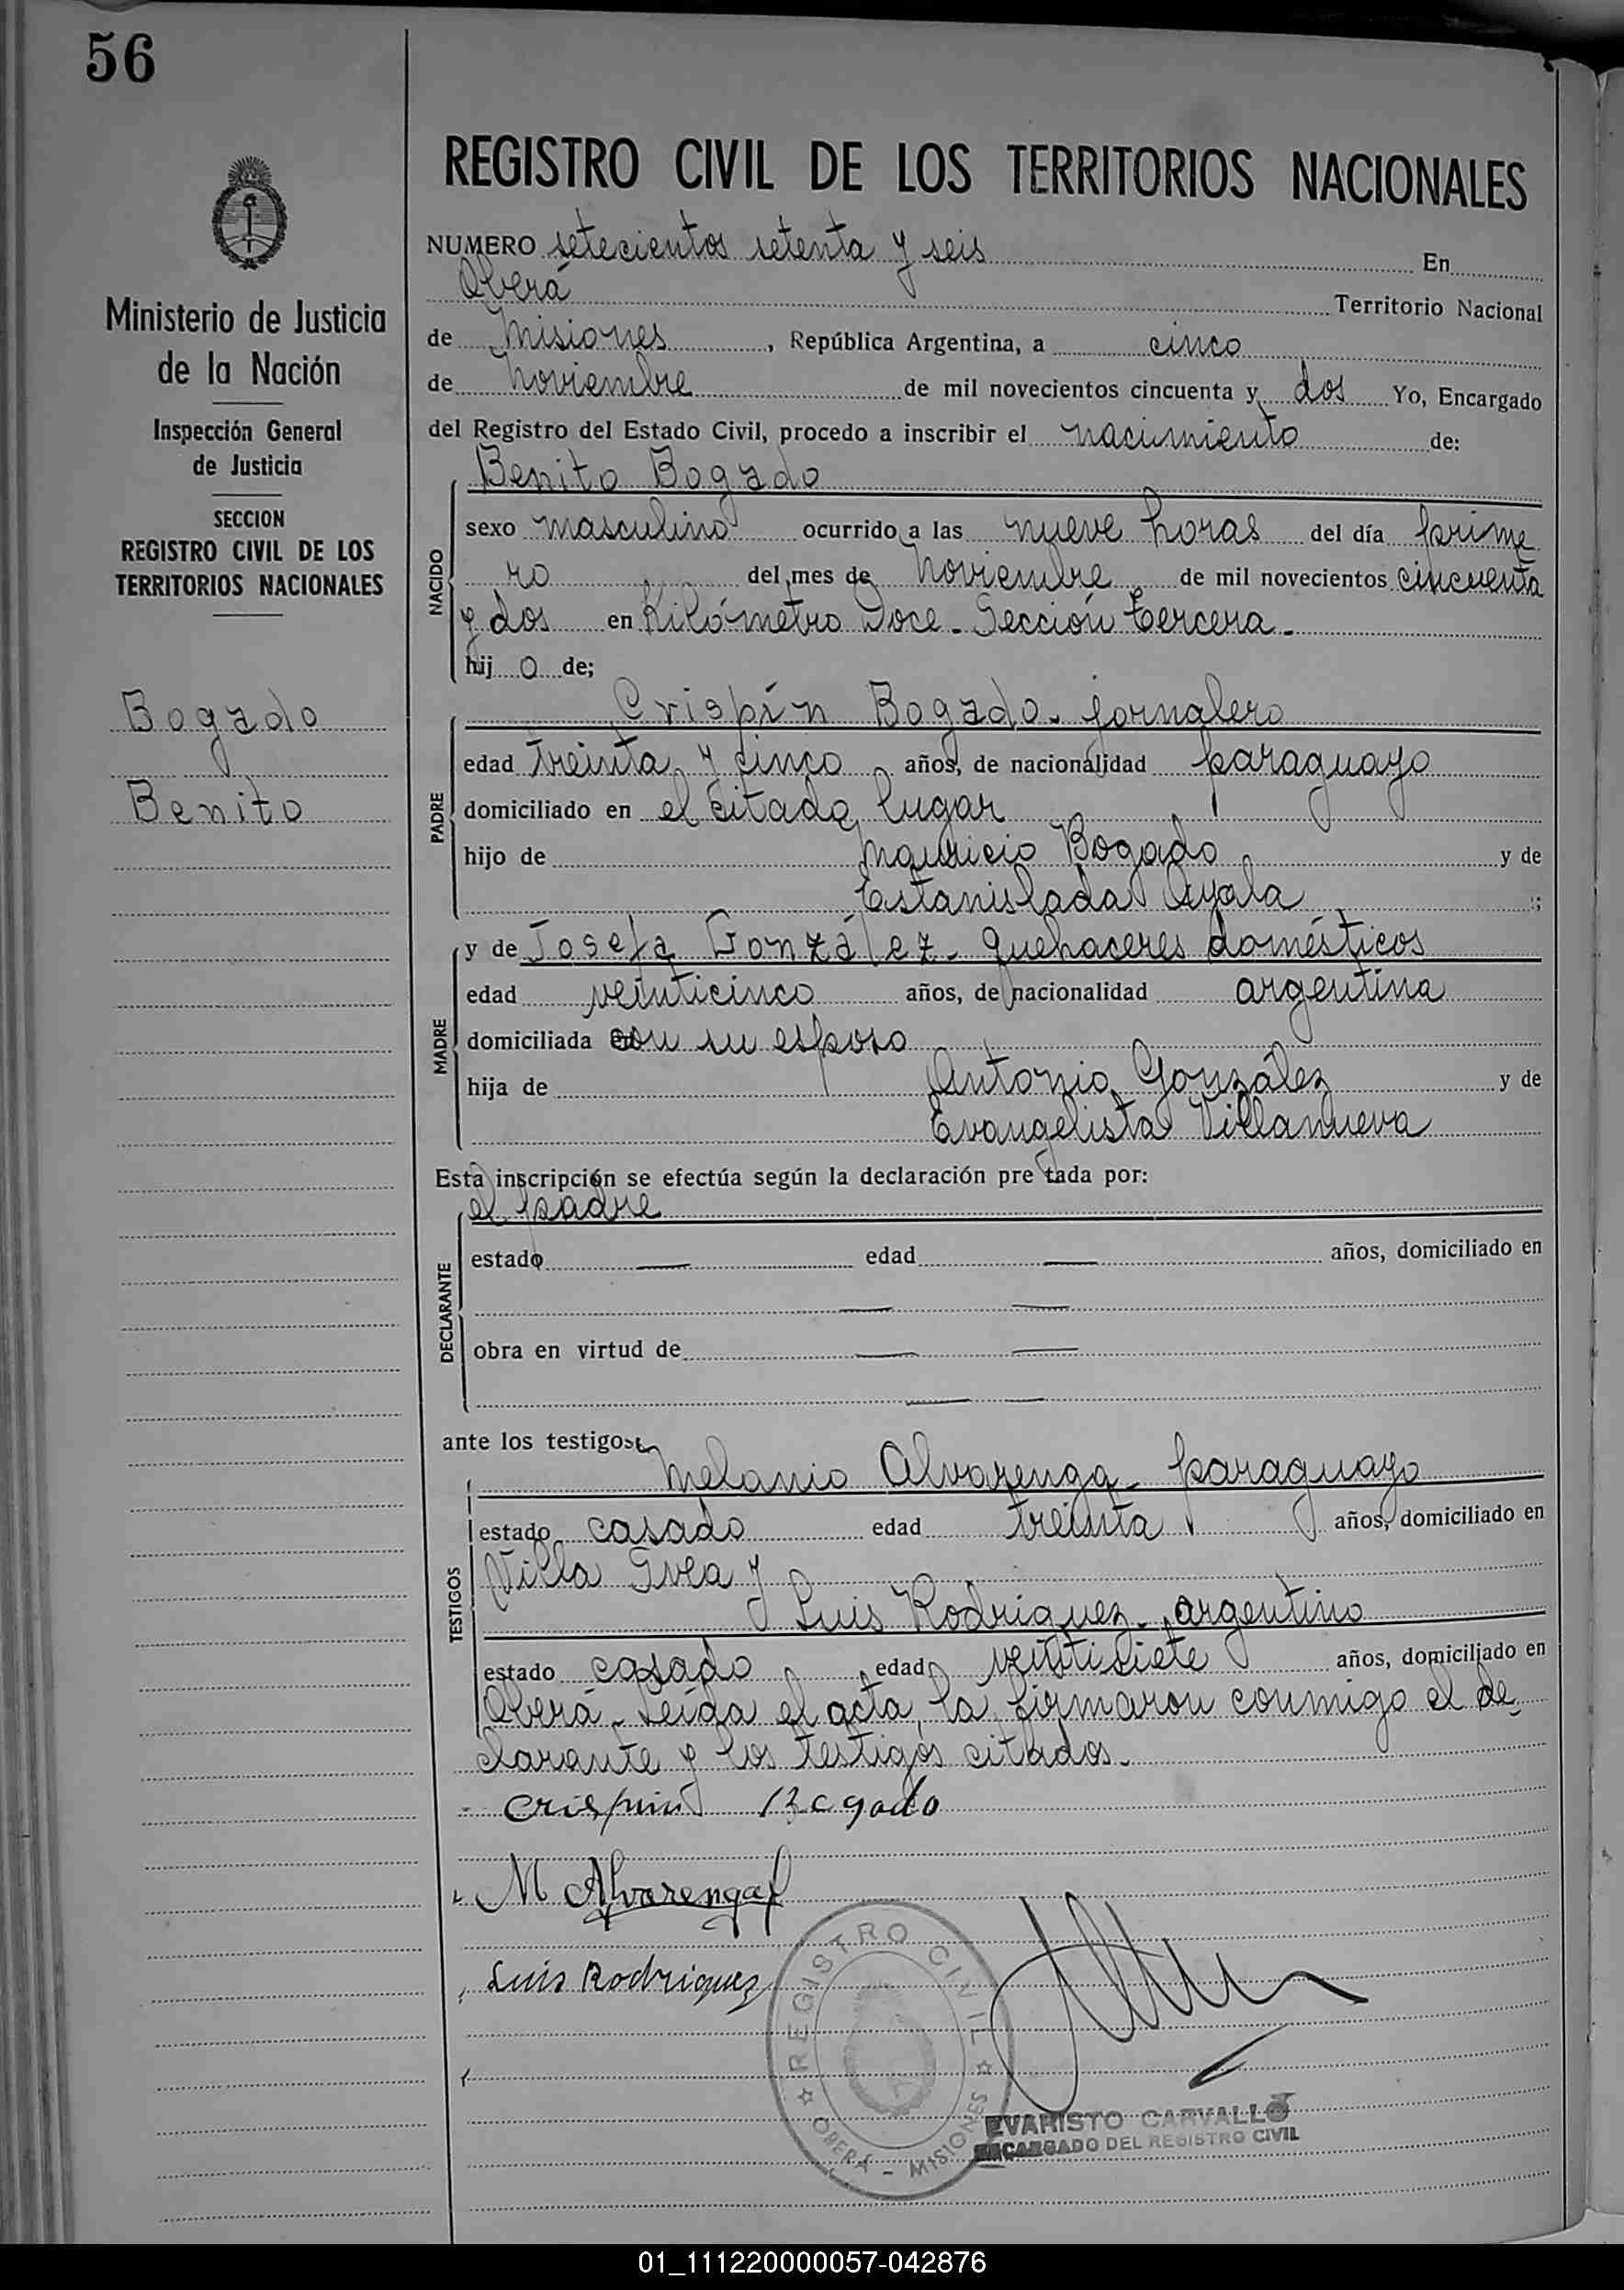 56
Ministerio de Justicia
de la Nación
Inspección General
de Justicia
SECCION
REGISTRO CIVIL DE LOS
TERRITORIOS NACIONALES
Bogado
Benito
REGISTRO CIVIL DE LOS TERRITORIOS NACIONALES
NUMERO setecientos setenta y seis En
Oberá Territorio Nacional
de Misiones, República Argentina, a cinco
de Noviembre de mil novecientos cincuenta y dos Yo, Encargado
del Registro del Estado Civil, procedo a inscribir el nacimiento de:
Benito Bogado
NACIDO
sexo masculino ocurrido a las nueve horas del día prime
ro del mes de Noviembre de mil novecientos cincuenta
y dos en Kilómetro Doce - Sección tercera -
hij o de;
PADRE
Crispín Bogado - jornalero
edad treinta y cinco años, de nacionalidad paraguayo
domiciliado en el citado lugar
hijo de Mauricio Bogado y de
Estanislada Ayala ;
MADRE
y de Josefa González - quehaceres domésticos
edad veinticinco años, de nacionalidad argentina
domiciliada con su esposo
hija de Antonio González y de
Evangelista Villanueva
Esta inscripción se efectúa según la declaración pre tada por:
el padre
DECLARANTE
estado — edad — años, domiciliado en
— —
obra en virtud de — —
— —
ante los testigos:
TESTIGOS
Melanio Alvarenga - paraguayo
estado casado edad treinta años, domiciliado en
Villa Svea y
Luis Rodriguez - argentino
estado casado edad veintisiete años, domiciliado en
Oberá - Leída el acta, la firmaron conmigo el de
clarante y los testigos citados -
Crispin Bogado
M Alvarenga
Luis Rodriguez
REGISTRO CIVIL
OBERÁ - MISIONES
EVARISTO CARVALLO
ENCARGADO DEL REGISTRO CIVIL
01_111220000057-042876